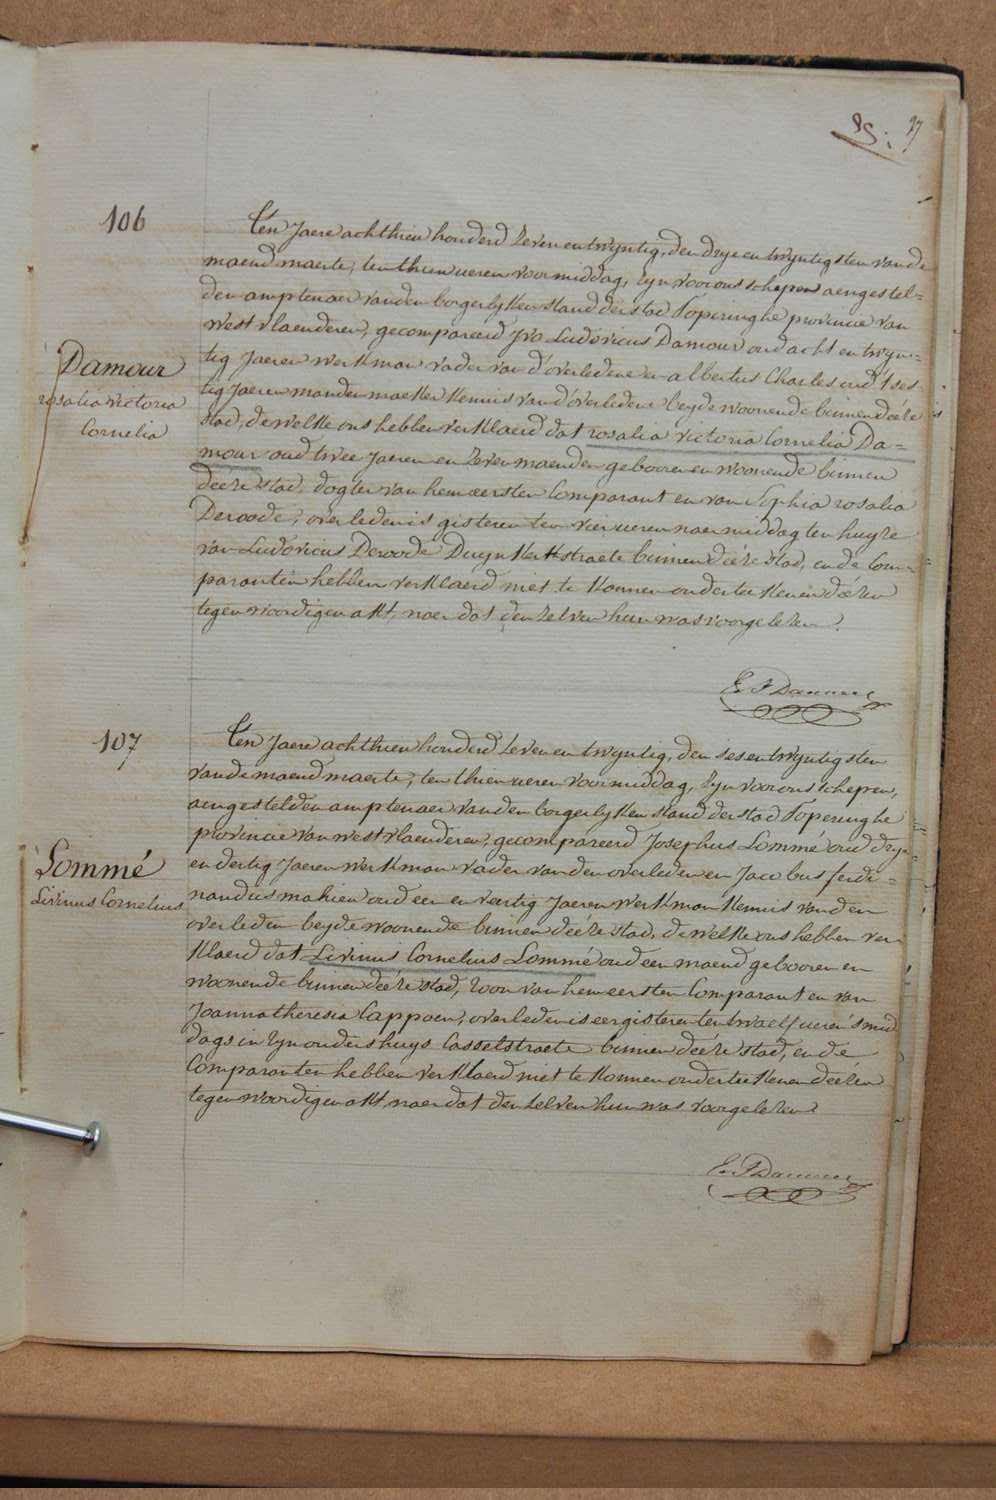 106
Ten Jaere achthien honderd zeven en twyntig, den drye en twyntigsten van de
maend maerte, ten thien ueren voormiddag, zyn voor ons schepen aengestel=
den amptenaer van den borgerlyken stand der stad Poperinghe provincie van
westvlaenderen, gecompareerd Ivo Ludovicus Damour oud acht en twyn=
tig Jaeren werkman vader van d'overledene en albertus Charles oud
tig Jaeren mandemaeker kennis van d'overledene beyde woonende binnen deéze
stad, dewelke ons hebben verklaerd dat rosalia victoria Cornelia Da=
mour oud twee Jaeren en zeven maenden gebooren en woonende binnen
deéze stad, dogter van hem eersten Comparant en van Sophia rosalia
Deroode, overleden is gisteren ten vier ueren naermiddag ten huyze
van Ludovicus Deroode Duynkerkstraete binnen deéze stad, en de Com=
paranten hebben verklaerd niet te konnen onderteekenen deézen
tegenwoordigen akt, naer dat den zelven hun was voorgelezen.
Damour
rosalia victoria
Cornelia
107
Ten Jaere achthien honderd zeven en twyntig, den ses en twyntigsten
van de maend maerte, ten thien ueren voormiddag, zyn voor ons schepen,
aengestelden amptenaer van den borgerlyken stand der stad Poperinghe
provincie van westvlaenderen, gecompareerd Josephus Lommé oud drye
en dertig Jaeren werkman vader van den overleden en Jacobus ferdi=
nandus mahieu oud een en veertig Jaeren werkman kennis van den
overleden beyde woonende binnen deéze stad, dewelke ons hebben ver
klaerd dat Livinus Cornelius Lommé oud een maend gebooren en
woonende binnen deéze stad, zoon van hem eersten Comparant en van
Joanna theresia Cappoen, overleden is eergisteren ten twaelf ueren 's mid
dags in zyn ouders huys Casselstraete binnen deéze stad, en de
Comparanten hebben verklaerd niet te konnen onderteekenen deézen
tegenwoordigen akt, naer dat den zelven hun was voorgelezen
Lommé
Livinus Cornelius